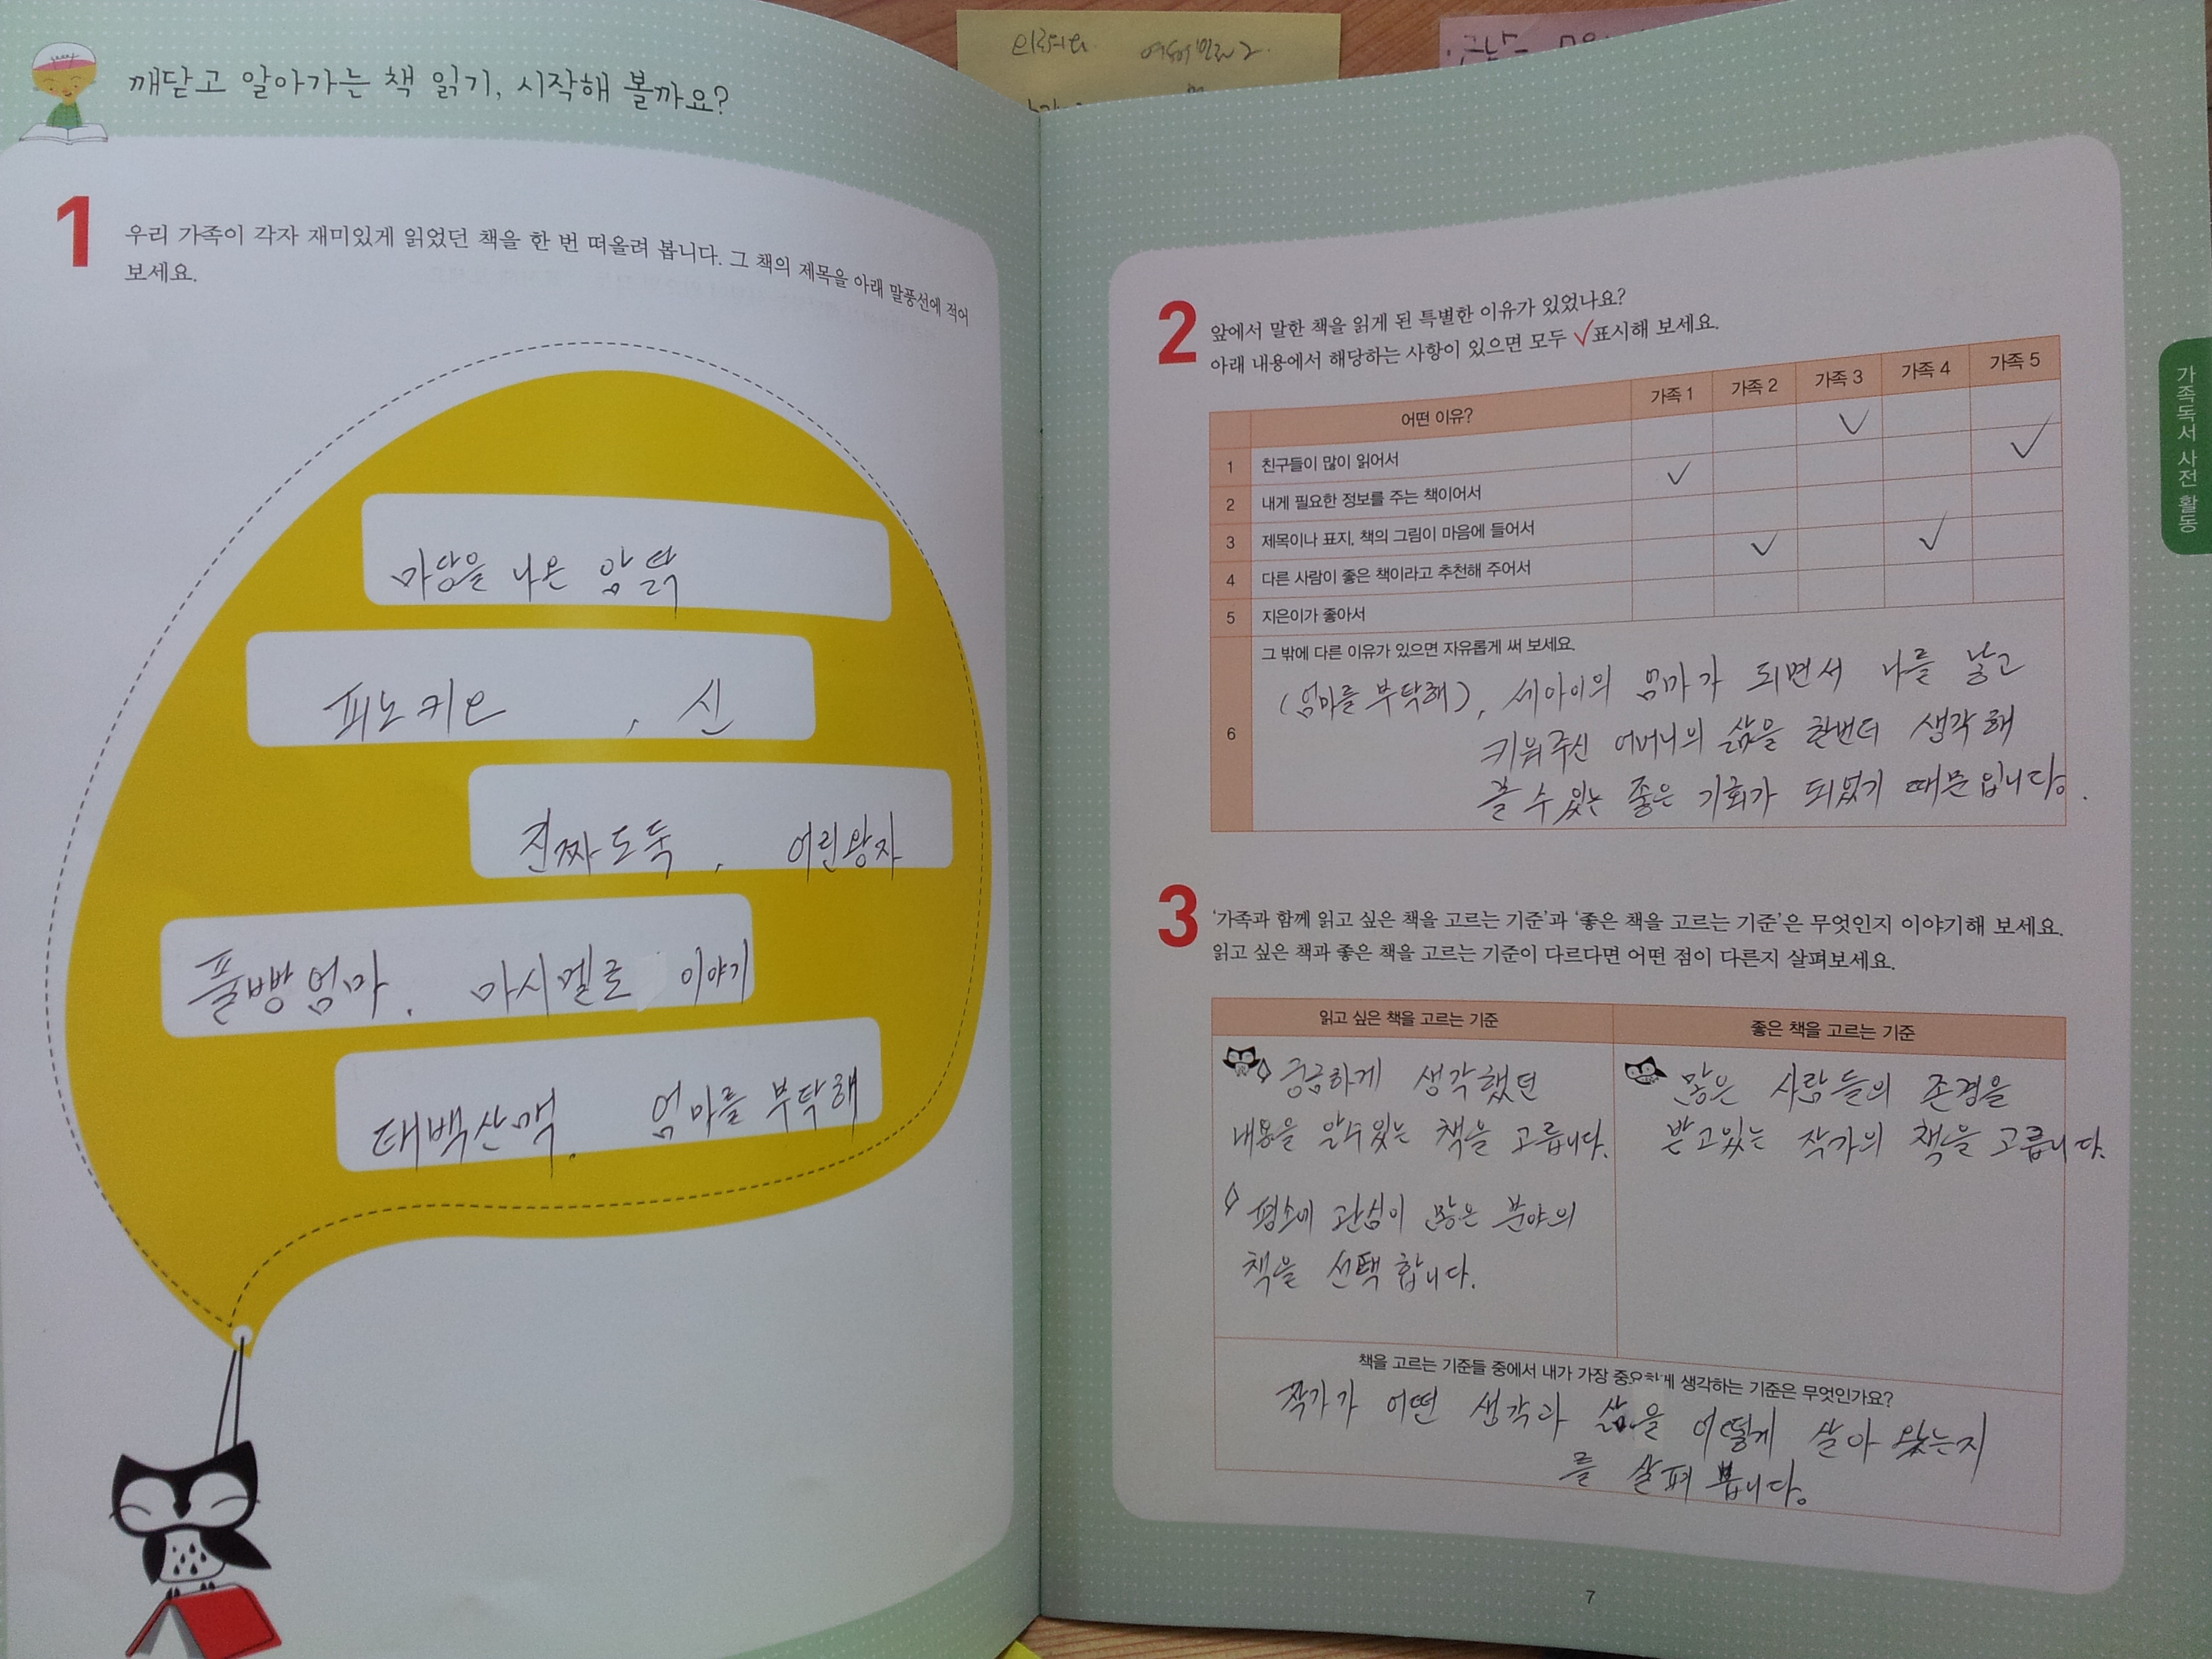 깨닫고 알아가는 책 읽기, 시작해 볼까요?
1
우리 가족이 각자 재미있게 읽었던 책을 한 번 떠올려 봅니다. 그 책의 제목을 아래 말풍선에 적어
보세요.
마당을 나온 암탉
피노키오 , 신
진짜도둑 , 어린왕자
풀빵엄마. 마시멜로 이야기
태백산맥. 엄마를 부탁해
2
앞에서 말한 책을 읽게 된 특별한 이유가 있었나요?
아래 내용에서 해당하는 사항이 있으면 모두 √표시해 보세요.
어떤 이유? 가족 1 가족 2 가족 3 가족 4 가족 5
1 친구들이 많이 읽어서
2 내게 필요한 정보를 주는 책이어서
3 제목이나 표지, 책의 그림이 마음에 들어서
4 다른 사람이 좋은 책이라고 추천해 주어서
5 지은이가 좋아서
그 밖에 다른 이유가 있으면 자유롭게 써 보세요.
6
(엄마를 부탁해), 세아이의 엄마가 되면서 나를 낳고
키워주신 어머니의 삶을 한번더 생각해
볼 수 있는 좋은 기회가 되었기 때문입니다.
3
'가족과 함께 읽고 싶은 책을 고르는 기준'과 '좋은 책을 고르는 기준'은 무엇인지 이야기해 보세요.
읽고 싶은 책과 좋은 책을 고르는 기준이 다르다면 어떤 점이 다른지 살펴보세요.
읽고 싶은 책을 고르는 기준
궁금하게 생각했던
내용을 알수있는 책을 고릅니다.
평소에 관심이 많은 분야의
책을 선택합니다.
좋은 책을 고르는 기준
많은 사람들의 존경을
받고있는 작가의 책을 고릅니다.
책을 고르는 기준들 중에서 내가 가장 중요하게 생각하는 기준은 무엇인가요?
작가가 어떤 생각과 삶을 어떻게 살아 왔는지
를 살펴 봅니다.
7
가족독서 사전 활동